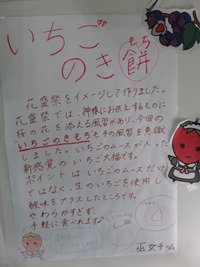 いちご
のき
もち
餅
花盛祭をイメージして作りました。
花盛祭では、神様にお供えするものに
桜の花を添える風習があり、今回の
いちごのきもちもその風習を意識
しました。いちごのムースが入った
新感覚のいちご大福です。
ポイントはいちごのムースだけ
ではなく、生のいちごを使用し
酸味をプラスしたところです。
やわらかすぎず、
手軽に食べれます♪
巫女チーム